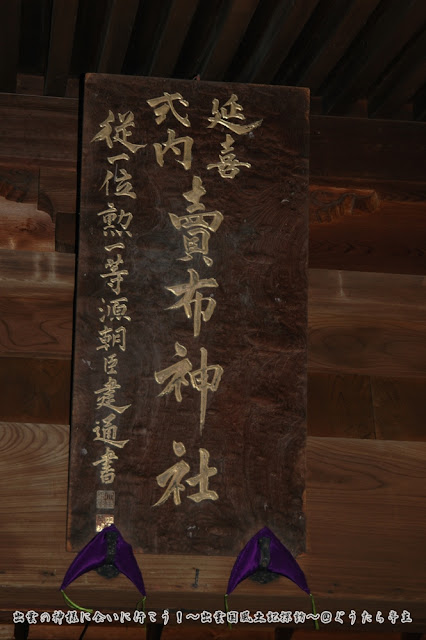 延喜
式内
賣布神社
従一位勲一等源朝臣建通書
出雲の神様に会いに行こう!～出雲国風土記探訪～@どうたら亭主